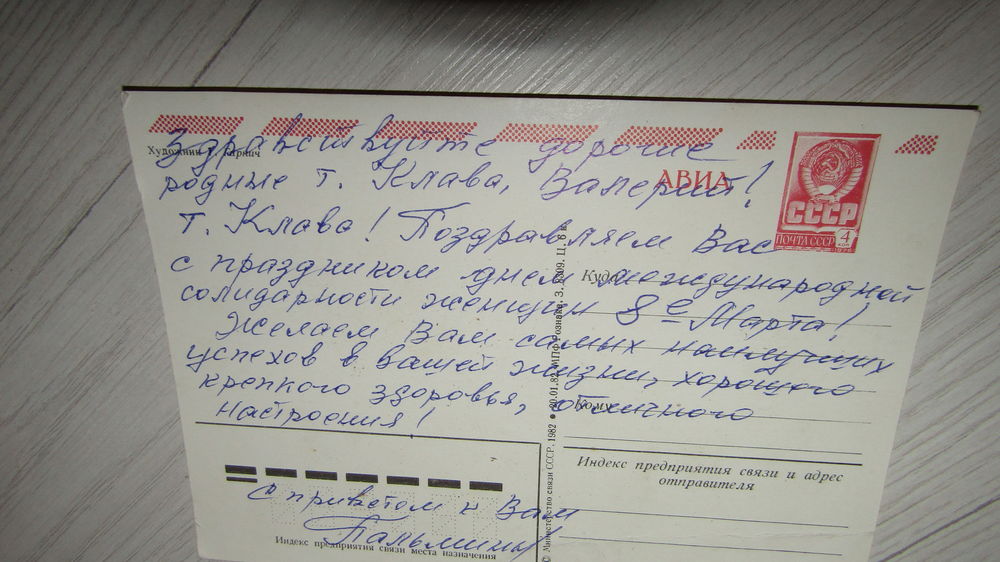 Здравствуйте дорогие
Художник Гарнич
родные т. Клава, Валерий!
АВИА
т. Клава! Поздравляем Вас
СССР
ПОЧТА СССР 4 КОП
с праздником днем международной
Куда
солидарности женщин 8е Марта!
Желаем Вам самых наилучших
успехов в вашей жизни, хорошего
крепкого здоровья, отличного
Кому
настроения!
Индекс предприятия связи и адрес
отправителя
С приветом к Вам
Пальмины
Индекс предприятия связи места назначения
© Министерство связи СССР. 1982 • 20.01.82. МПФ Гознака. З. Ц. 6 к.